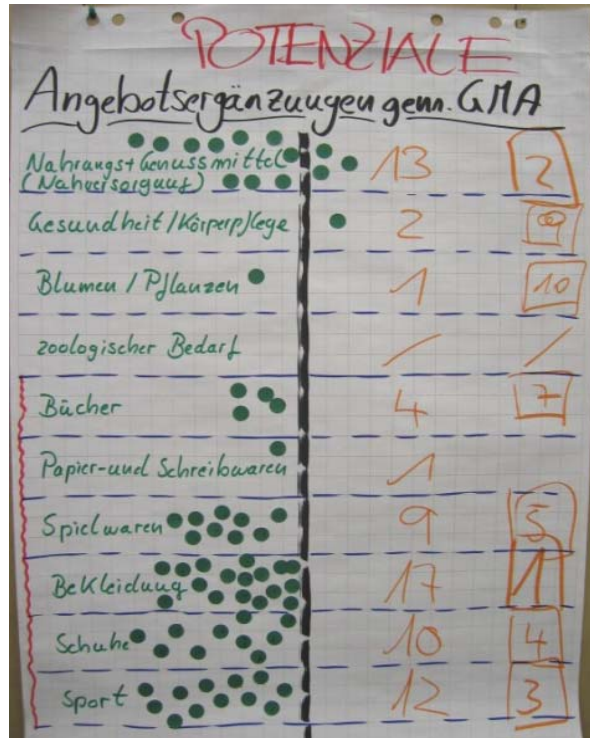 POTENZIALE
Angebotsergänzungen gem. GMA
Nahrungs+Genussmittel 13 2
(Nahversorgung)
Gesundheit/Körperpflege 2 9
Blumen / Pflanzen 1 10
zoologischer Bedarf / /
Bücher 4 7
Papier-und Schreibwaren 1
Spielwaren 9 5
Bekleidung 17 1
Schuhe 10 4
Sport 12 3